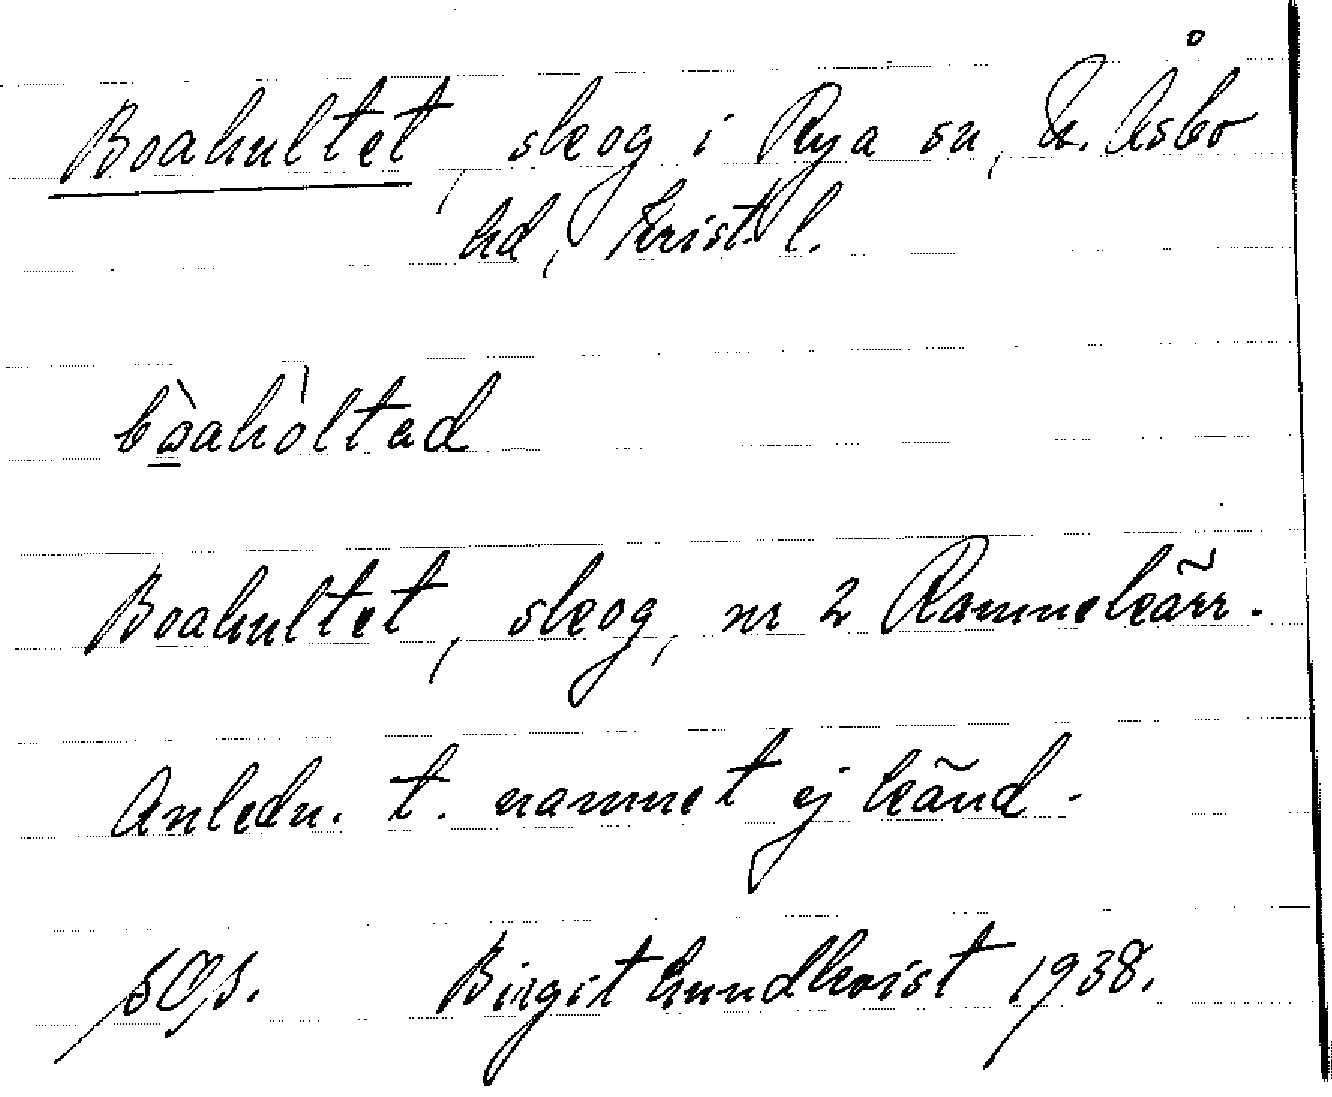 Boahultet, skog i Rya sn, N. Åsbo
hd, Krist. l.
bòahòltad
Boahultet, skog, nr 2 Ramnekärr.
Anledn. t. namnet ej känd.
Birgit Lundkvist 1938.